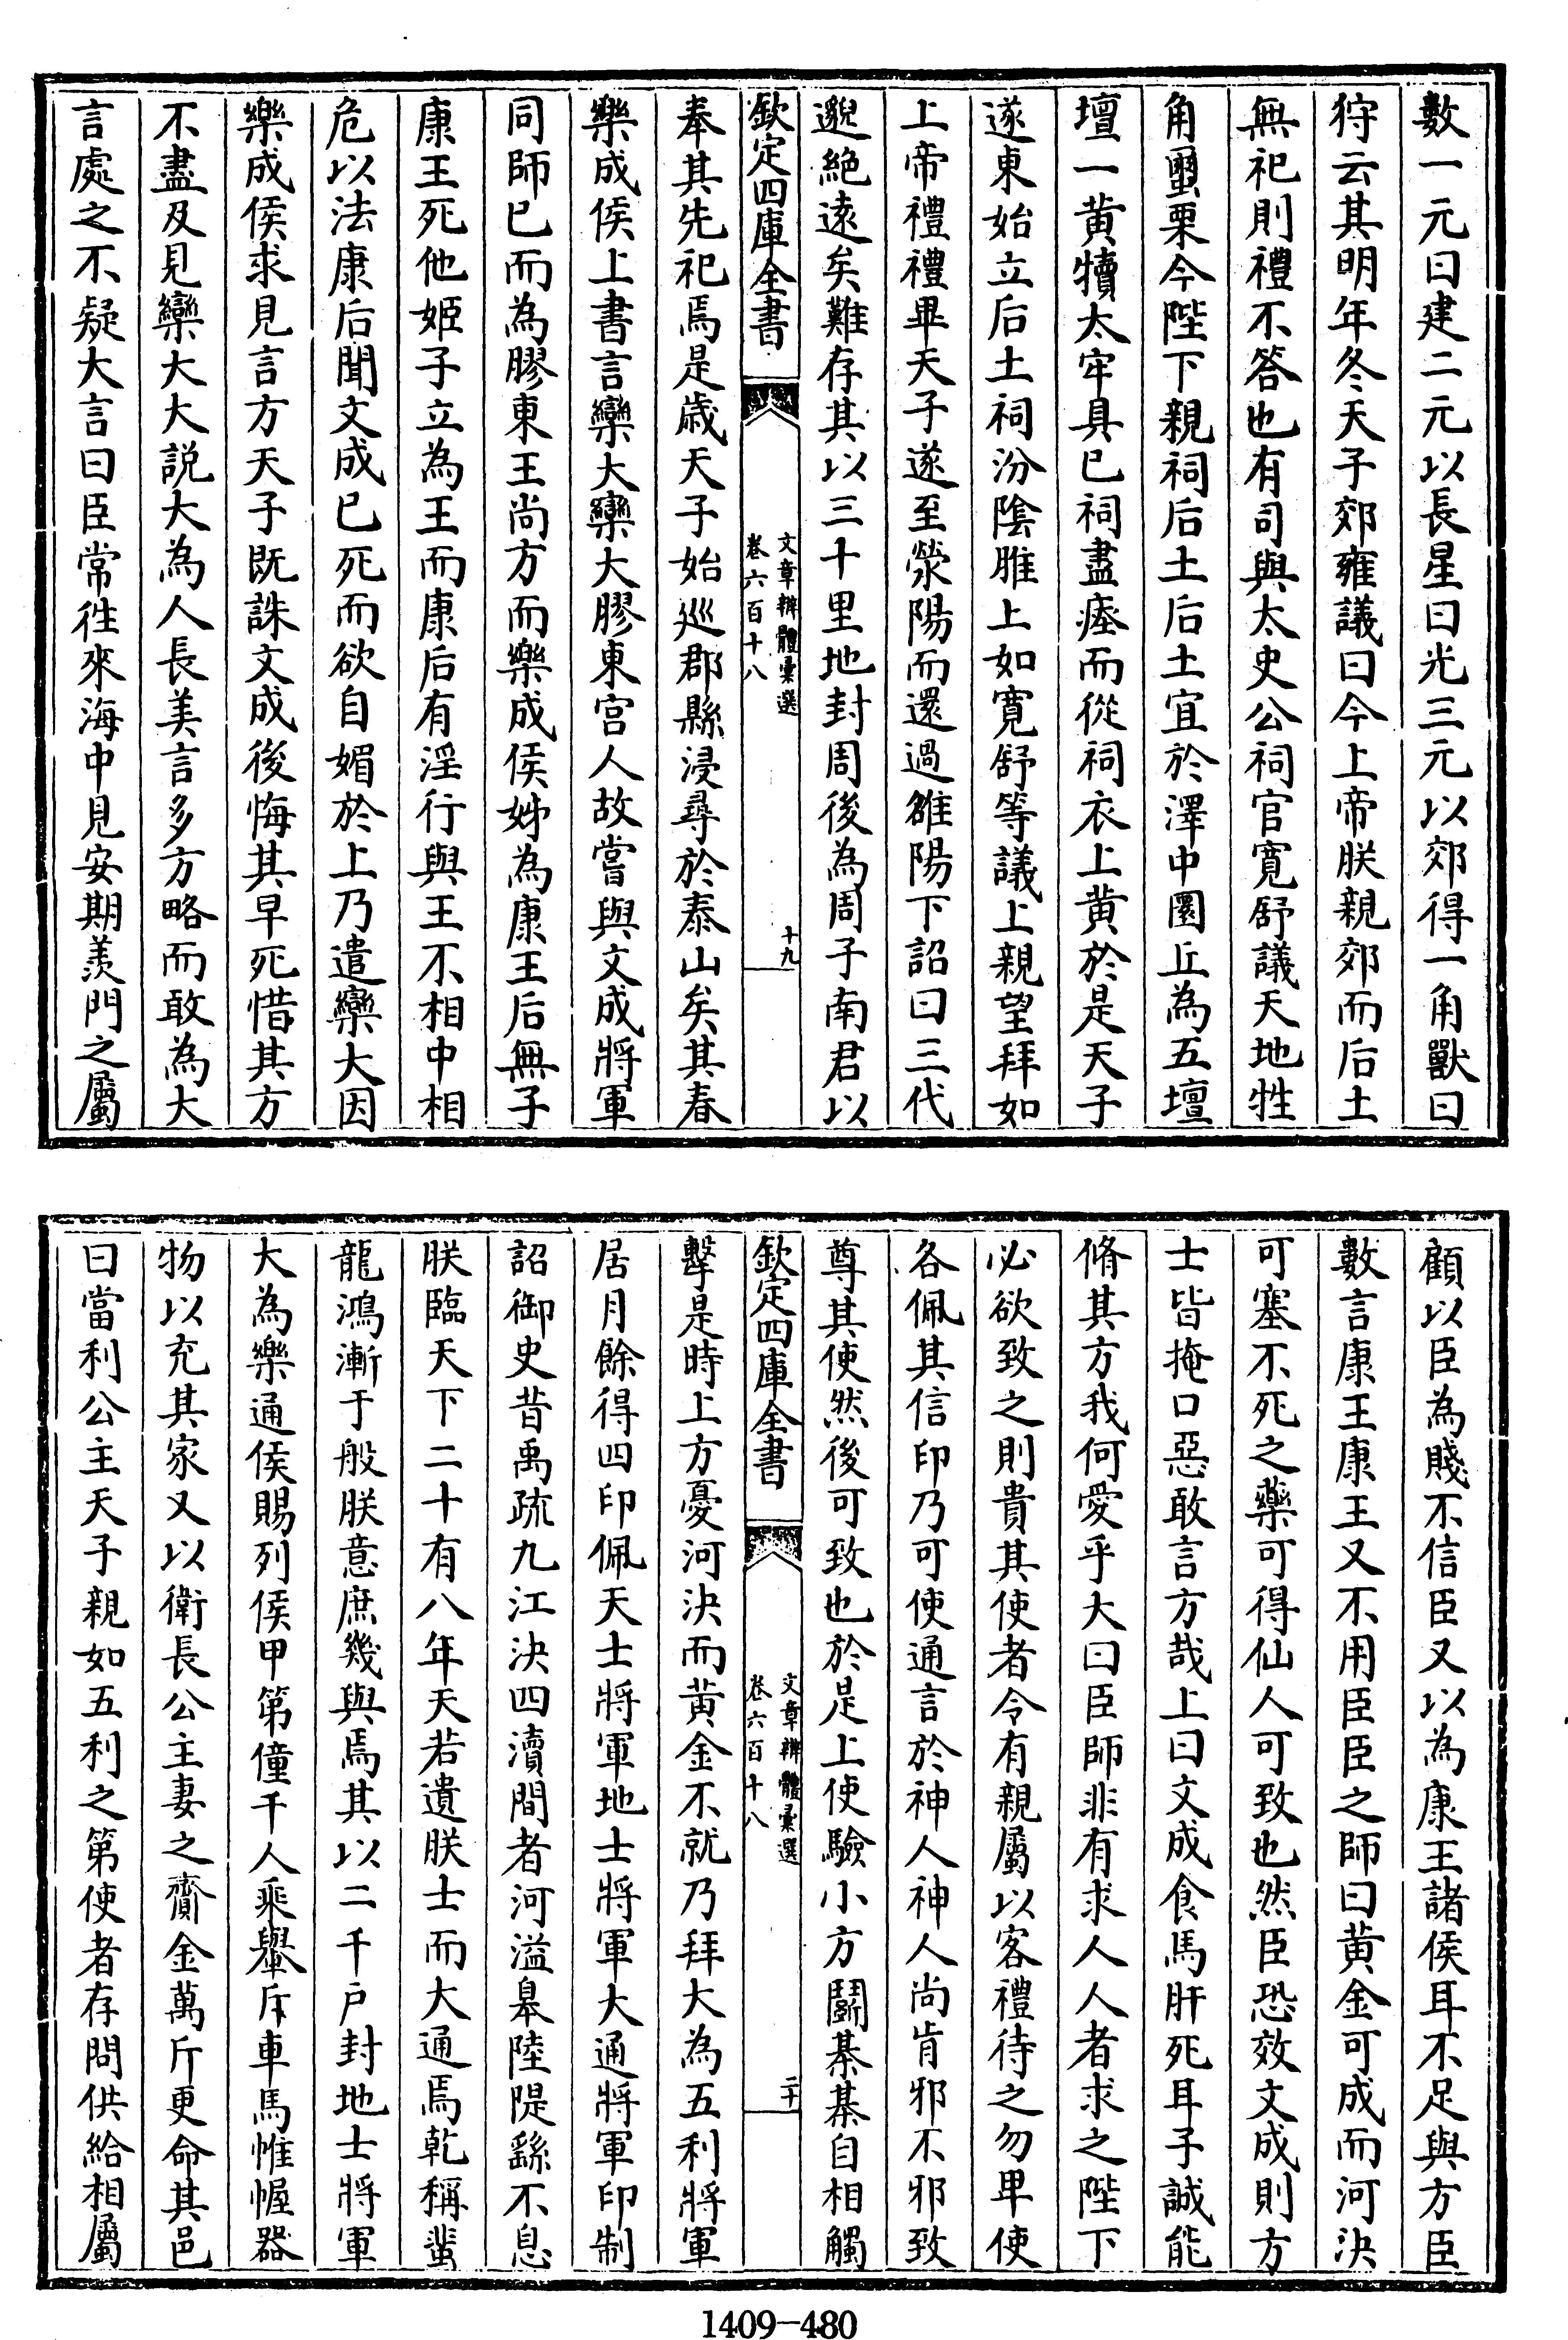 數一元曰建二元以長星曰光三元以郊得一角獸曰
狩云其明年冬天子郊雍議曰今上帝朕親郊而后土
無祀則禮不答也有司與太史公祠官寛舒議天地牲
角蠒栗今陛下親祠后土后土宜於澤中圜丘為五壇
壇一黄犢太牢具已祠盡瘞而從祠衣上黄於是天子
遂東始立后土祠汾陰脽上如寛舒等議上親望拜如
上帝禮禮畢天子遂至滎陽而還過雒陽下詔曰三代
邈絶逺矣難存其以三十里地封周後為周子南君以
欽定四庫全書
文章辨體彚選
卷六百十八
十九
奉其先祀焉是歳天子始巡郡縣浸尋於泰山矣其春
樂成侯上書言欒大欒大膠東宫人故嘗與文成將軍
同師已而為膠東王尚方而樂成侯姊為康王后無子
康王死他姬子立為王而康后有淫行與王不相中相
危以法康后聞文成已死而欲自媚於上乃遣欒大因
樂成侯求見言方天子既誅文成後悔其早死惜其方
不盡及見欒大大説大為人長美言多方略而敢為大
言處之不疑大言曰臣常徃來海中見安期羨門之屬
顧以臣為賤不信臣又以為康王諸侯耳不足與方臣
數言康王康王又不用臣臣之師曰黄金可成而河決
可塞不死之藥可得仙人可致也然臣恐效文成則方
士皆掩口惡敢言方哉上曰文成食馬肝死耳子誠能
脩其方我何愛乎大曰臣師非有求人人者求之陛下
必欲致之則貴其使者令有親屬以客禮待之勿卑使
各佩其信印乃可使通言於神人神人尚肯邪不邪致
尊其使然後可致也於是上使驗小方鬭棊棊自相觸
欽定四庫全書
文章辨體彚選
卷六百十八
二十
擊是時上方憂河決而黄金不就乃拜大為五利將軍
居月餘得四印佩天士將軍地士將軍大通將軍印制
詔御史昔禹疏九江決四瀆間者河溢臯陸隄繇不息
朕臨天下二十有八年天若遺朕士而大通焉乾稱蜚
龍鴻漸于般朕意庶幾與焉其以二千户封地士將軍
大為樂通侯賜列侯甲第僮千人乘轝斥車馬帷幄器
物以充其家又以衛長公主妻之齎金萬斤更命其邑
曰當利公主天子親如五利之第使者存問供給相屬
1409-480